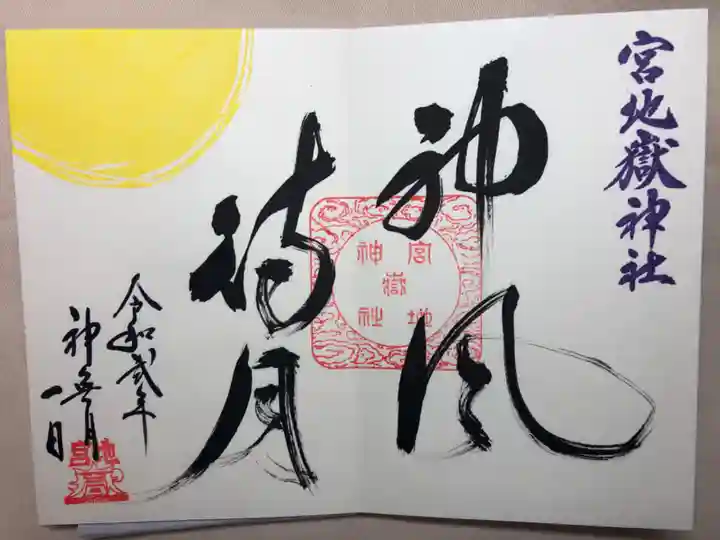 宮地嶽神社
神風
待月
宮地
嶽
神社
令和弐年
神無月
一日